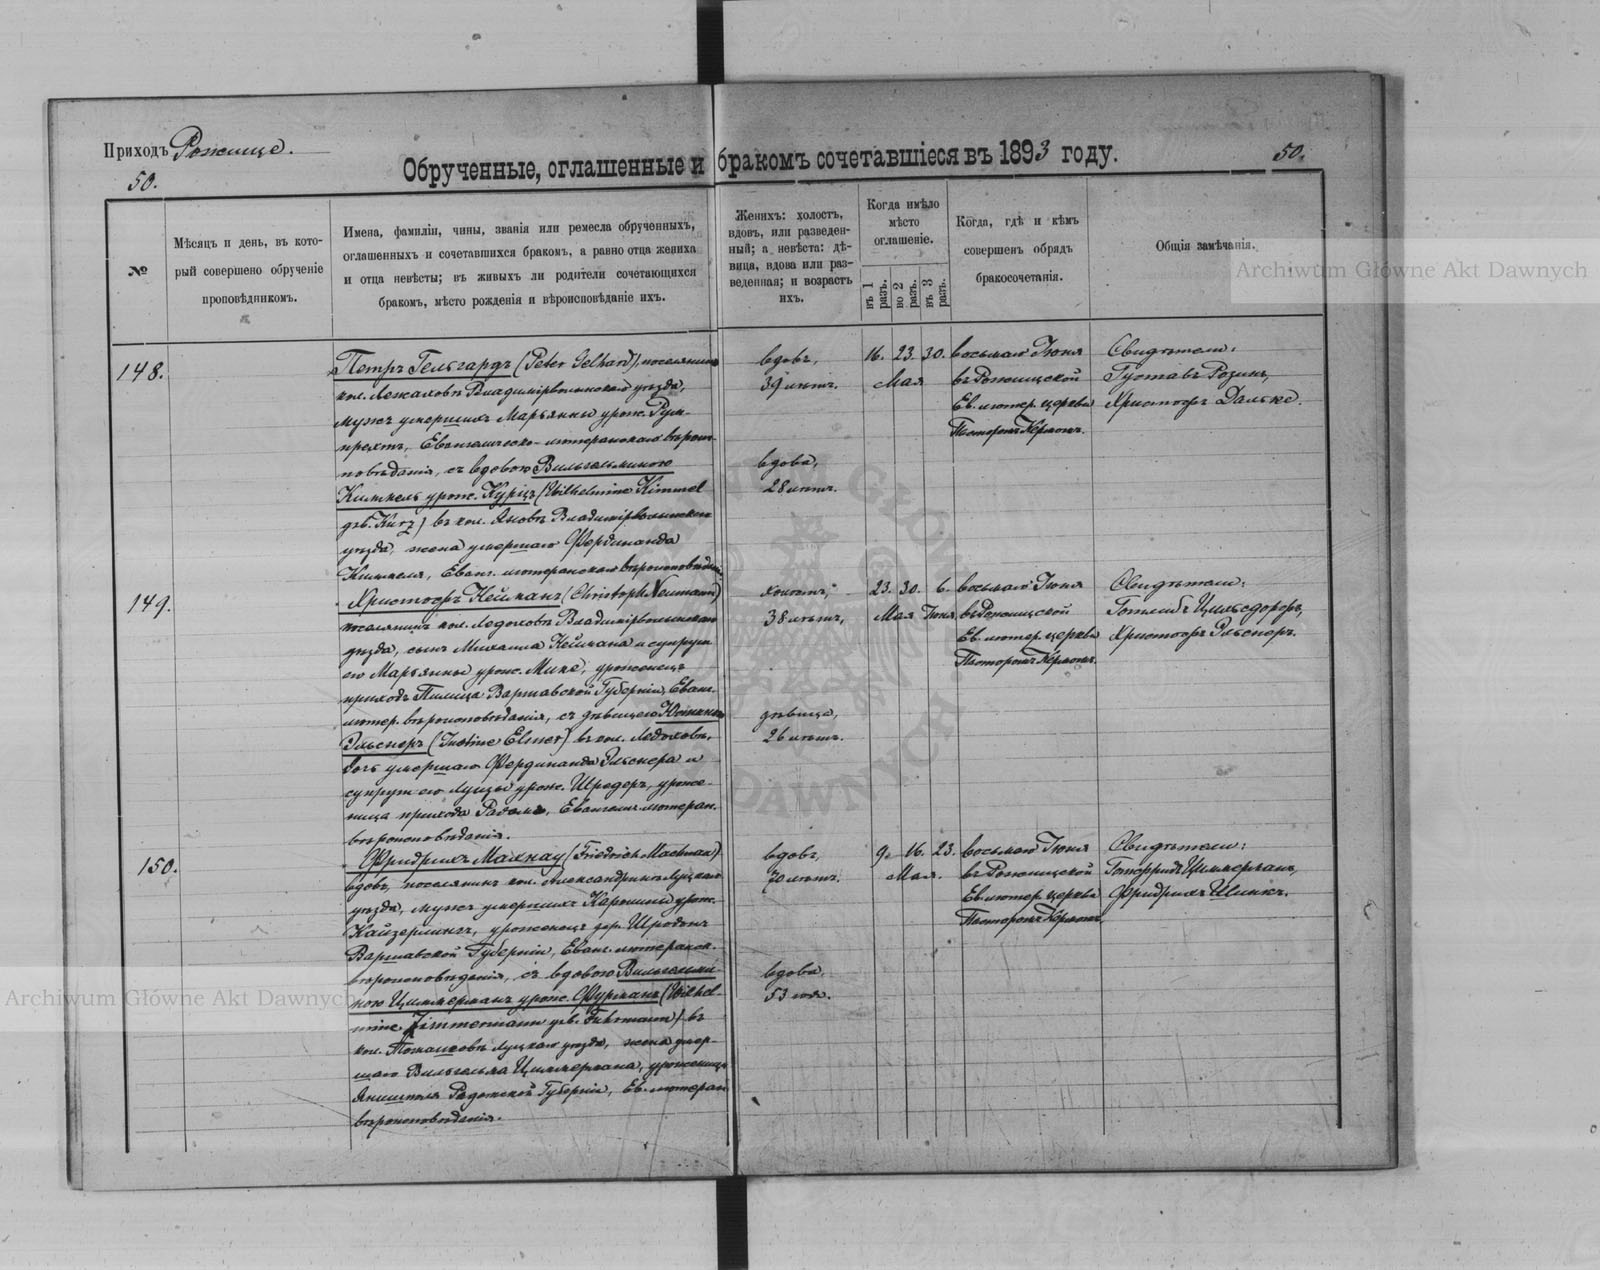 Приходъ Рожище.
50.
Обрученные, оглашенные и бракомъ сочетавшіеся въ 1893 году.
50.
№
Мѣсяцъ и день, въ кото-
рый совершено обрученіе
проповѣдникомъ.
Имена, фамиліи, чины, званія или ремесла обрученныхъ,
оглашенныхъ и сочетавшихся бракомъ, а равно отца жениха
и отца невѣсты; въ живыхъ ли родители сочетающихся
бракомъ, мѣсто рожденія и вѣроисповѣданіе ихъ.
Женихъ: холостъ,
вдовъ, или разведен-
ный; а невѣста: дѣ-
вица, вдова или раз-
веденная; и возрастъ
ихъ.
Когда имѣло
мѣсто
оглашеніе.
въ 1 разъ.
во 2 разъ.
въ 3 разъ.
Когда, гдѣ и кѣмъ
совершенъ обрядъ
бракосочетанія.
Общія замѣчанія.
Archiwum Główne Akt Dawnych
148.
Петръ Гельгардъ (Peter Gelhard), поселянинъ
кол. Владимірволынскаго уѣзда,
мужъ умершихъ Марьянны урож. Рум-
прехтъ, Евангелическо-лютеранскаго вѣроис-
повѣданія, съ вдовою Вильгельминою
Киммель урож. Курцъ (Wilhelmine Kimmel
geb. Kurz) въ кол. Яновъ Владимірволынскаго
уѣзда, жена умершаго Фердинанда
Киммеля, Еванг. лютеранскаго вѣроисповѣданія.
вдовъ,
39 лѣтъ.
вдова,
28 лѣтъ.
16. 23. 30.
Мая
восьмаго Іюня
въ Рожищской
Ев. лютер. церкви
Пасторомъ Кэрмомъ.
Свидѣтели:
Густавъ Розинъ,
Христофъ Дальке.
149.
Христофъ Нейманъ (Christoph Neumann)
поселянинъ кол. Ледоховъ Владимірволынскаго
уѣзда, сынъ Михаила Неймана и супруги
его Марьянны урож. Милке, уроженецъ
приходъ Пилица Варшавской Губерніи, Еванг.
лютер. вѣроисповѣданія, съ дѣвицею Юстиною
Эльснеръ (Justine Elsner) въ кол. Ледоховъ,
дочь умершаго Фердинанда Эльснера и
супруги его Луизы урож. Шредеръ, уроже-
ница прихода Радомъ, Евангелич. лютеран.
вѣроисповѣданія.
холостъ,
38 лѣтъ,
дѣвица,
26 лѣтъ.
23. 30. 6.
Мая Іюня
восьмаго Іюня
въ Рожищской
Ев. лютер. церкви
Пасторомъ Кэрмомъ.
Свидѣтели:
Готлибъ Цильсдорфъ,
Христофъ Эльснеръ.
150.
Фридрихъ Махнау (Friedrich Machnau)
вдовъ, поселянинъ кол. Александринъ Луцкаго
уѣзда, мужъ умершихъ Каролины урож.
Кайзерлингъ, уроженецъ дер.
Варшавской Губерніи, Еванг. лютеранск.
вѣроисповѣданія, съ вдовою Вильгельми-
ною Циммерманъ урож. Фурманъ (Wilhel-
mine Zimmermann geb. Fuhrmann) въ
кол. Томашовъ Луцкаго уѣзда, жена умер-
шаго Вильгельма Циммермана, уроженица
Радомской Губерніи, Ев. лютеран.
вѣроисповѣданія.
вдовъ,
70 лѣтъ.
вдова,
53 года.
9. 16. 23.
Мая.
восьмаго Іюня
въ Рожищской
Ев. лютер. церкви
Пасторомъ Кэрмомъ.
Свидѣтели:
Готфридъ Циммерманъ,
Фридрихъ Шинкъ.
Archiwum Główne Akt Dawnych